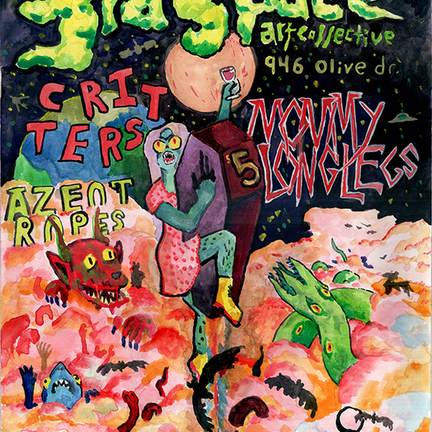 3rd Space
art collective
946 Olive dr
CRIT
TERS
MOMMY
LONGLEGS
5
AZEOT
ROPES